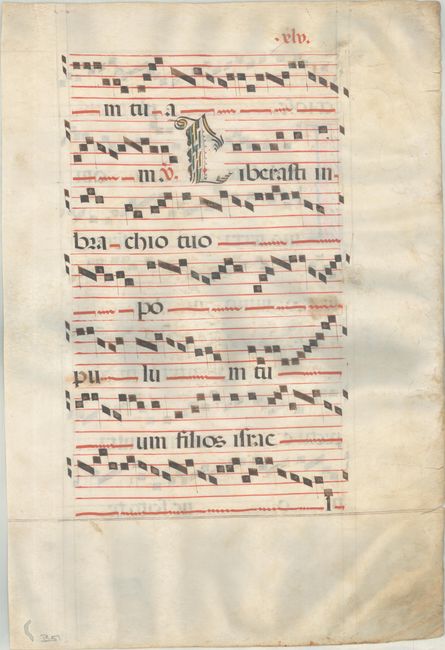 ·xlv.
in tu a
m. v. Liberasti in
bra chio tuo
po
pu lu m tu
um filios israe
l